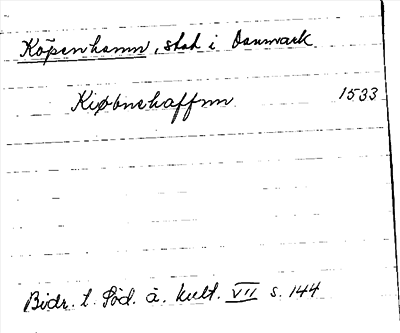 Köpenhamn, stad i Danmark
Kiøbnehaffnn 1533
Bidr. t. Söd. ä. kult. VII s. 144